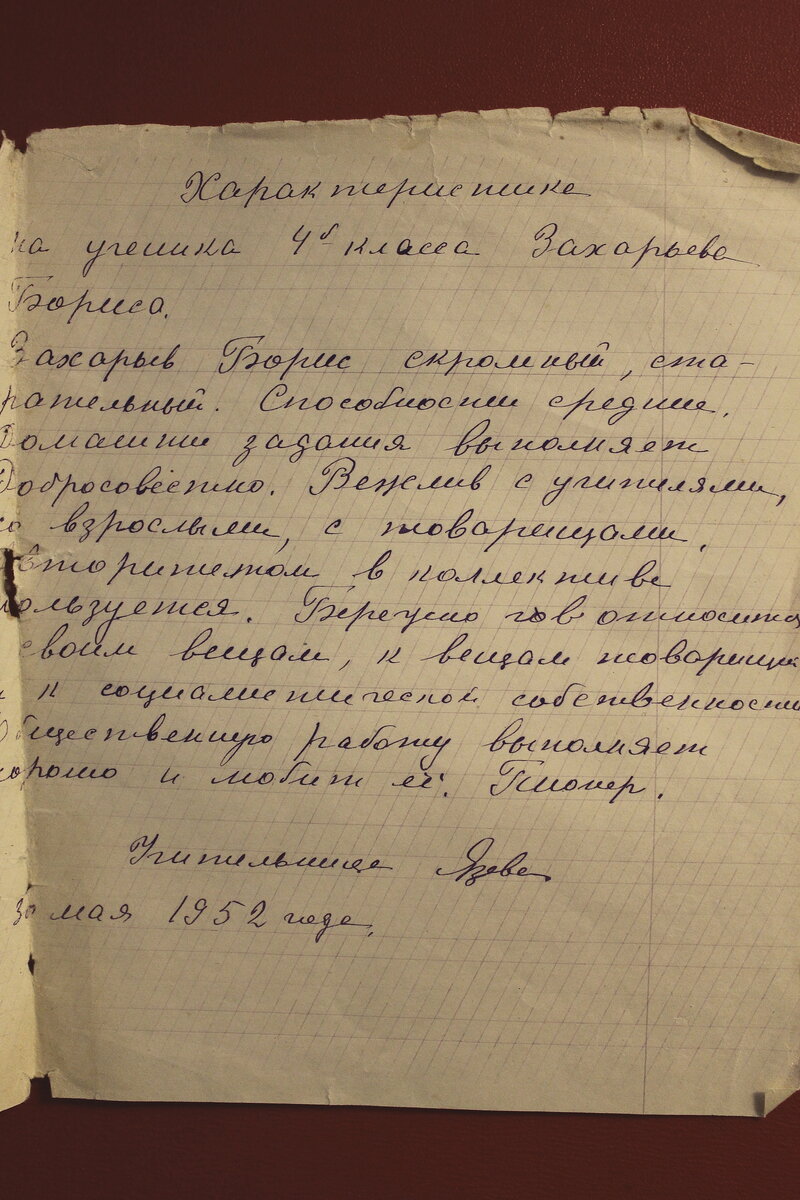 Характеристика
на ученика 4б класса Захарьева
Бориса.
Захарьев Борис скромный, ста-
рательный. Способности средние.
Домашние задания выполняет
добросовестно. Вежлив с учителями,
со взрослыми, с товарищами.
Авторитетом в коллективе
пользуется. Бережно относится
своим вещам, к вещам товарищей
и к социалистической собственности
Общественную работу выполняет
хорошо и любит её. Пионер.
Учительница Язева
30 мая 1952 года.